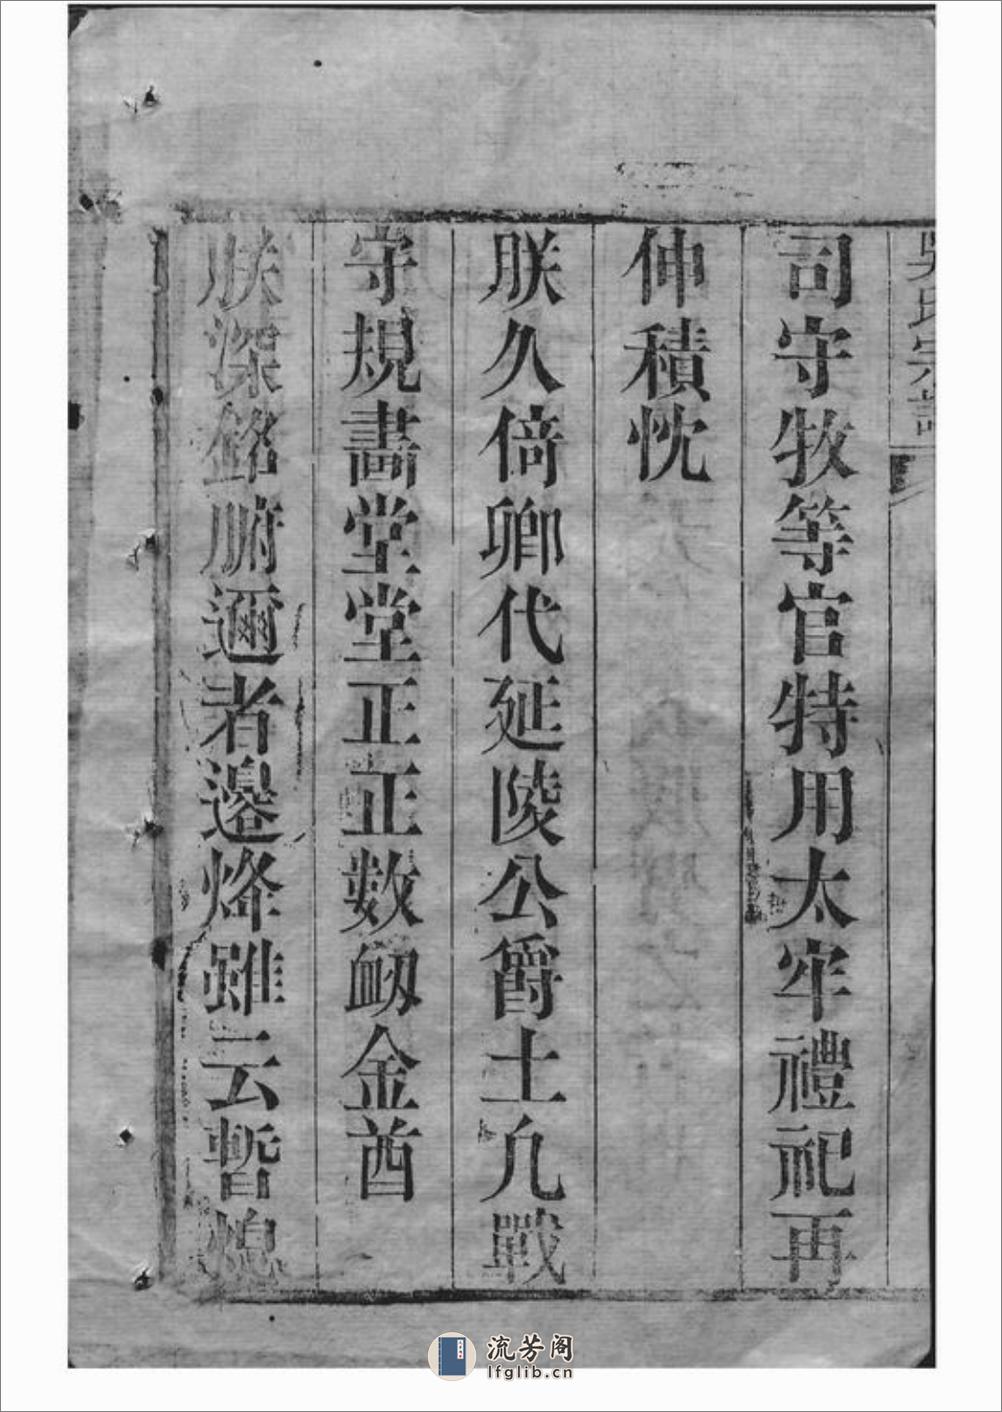 吳氏宗譜
司守牧等官特用太牢禮祀再
伸積忱
朕久倚卿代延陵公爵土凡戰
守規畫堂堂正正數衂金酋
朕深銘腑邇者邊烽雖云暫熄
流芳阁
lfglib.cn